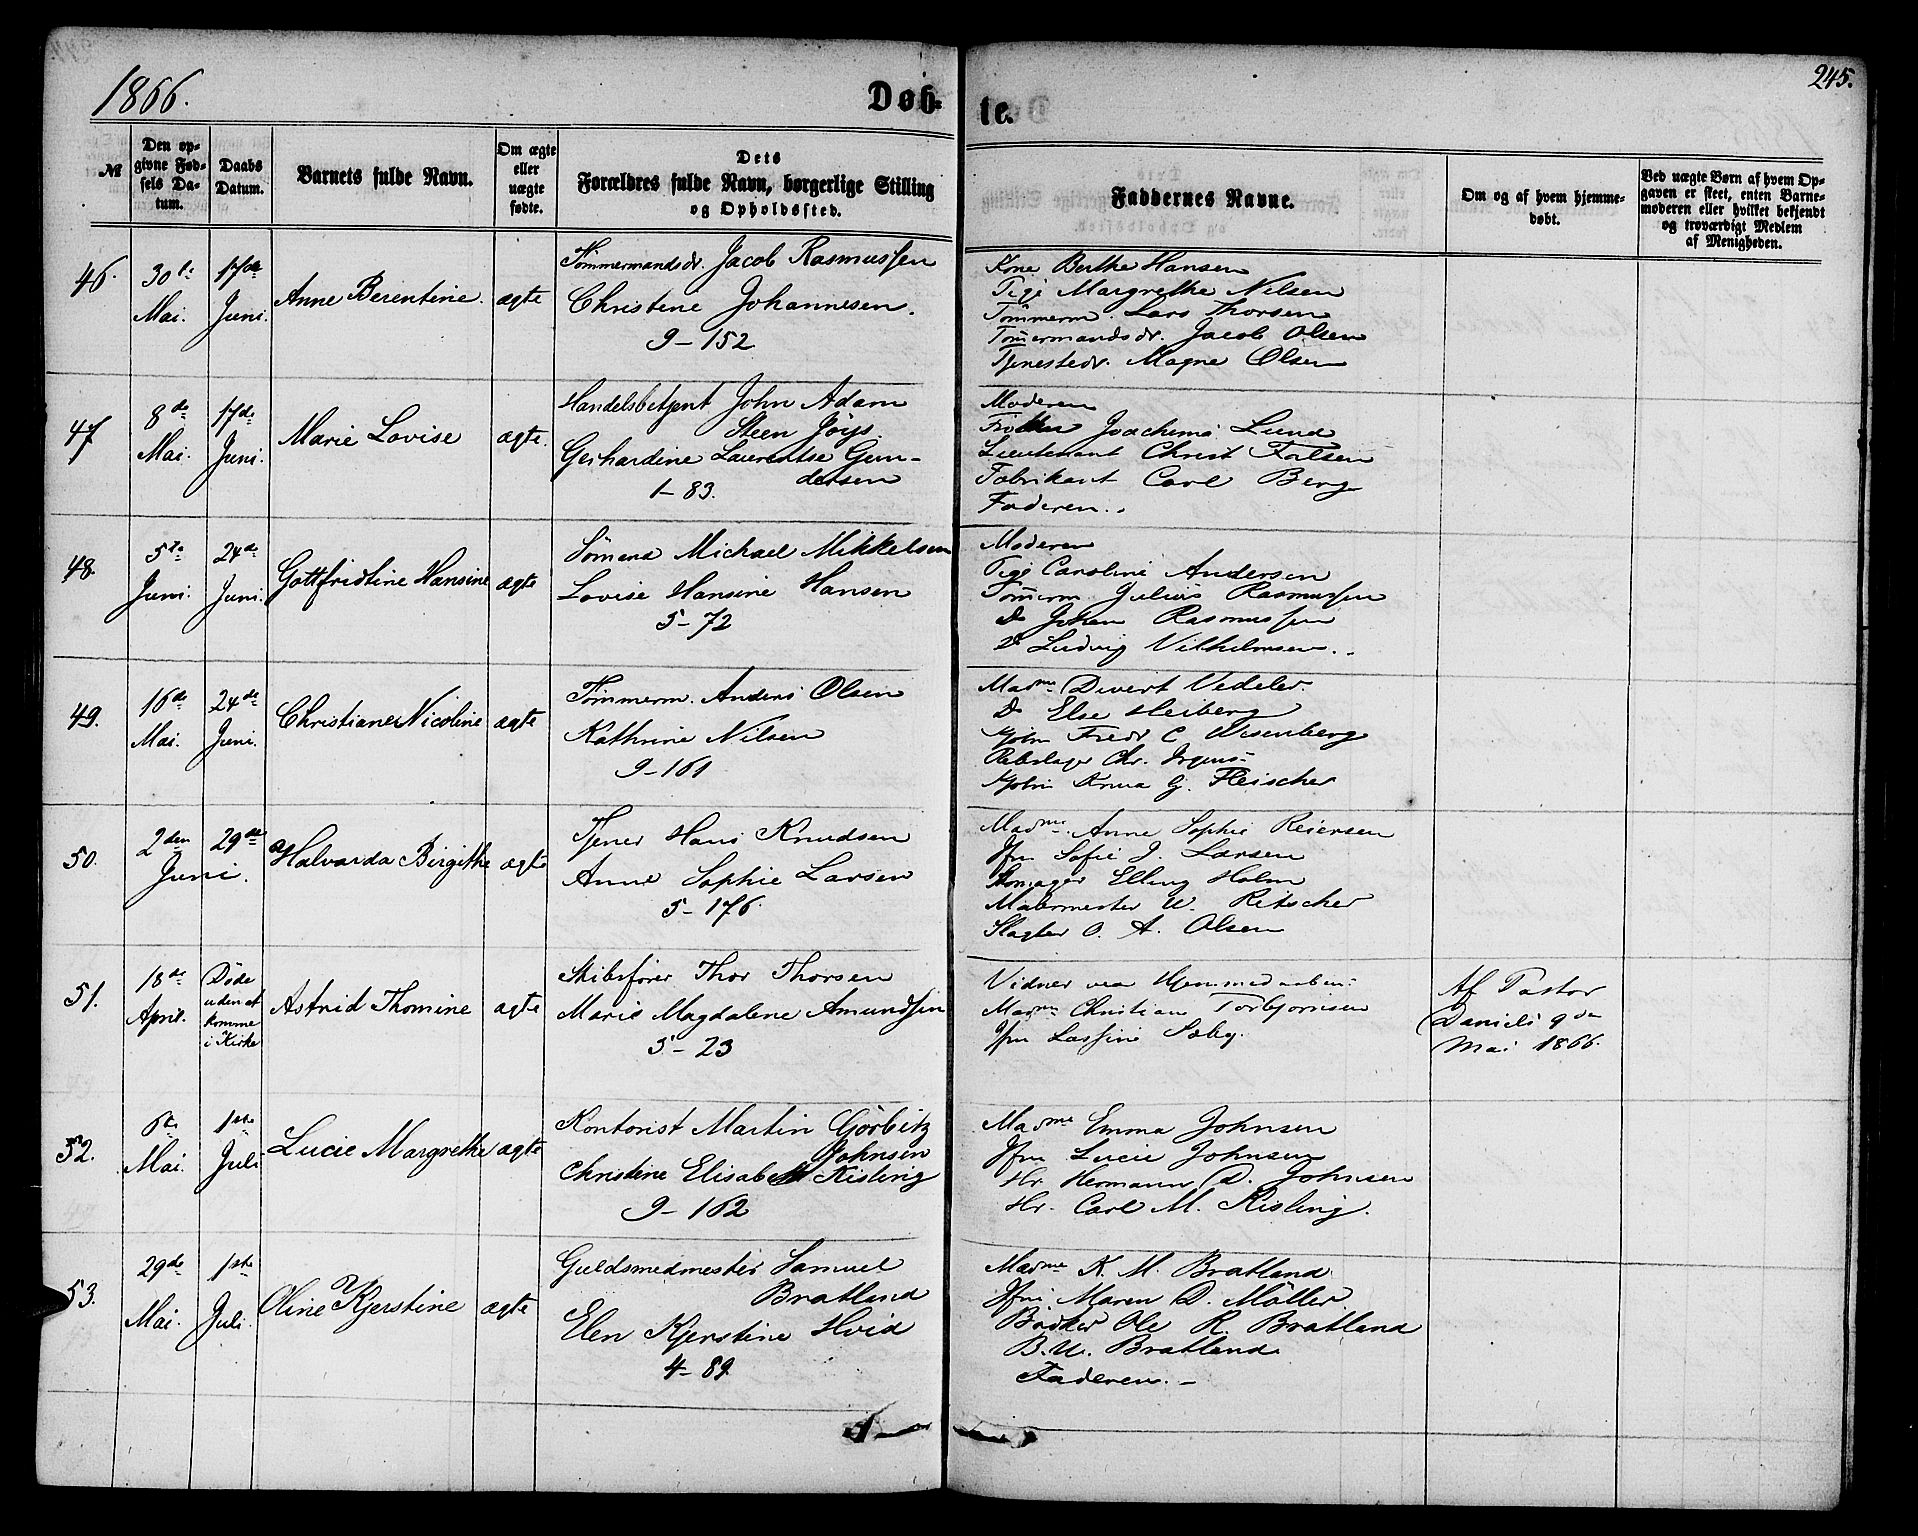 1866.
Døb-
te.
245.
№
Den op-
givne Fød-
sels Da-
tum.
Daabs
Datum.
Barnets fulde Navn.
Om ægte
eller
uægte
fødte.
Dets
Forældres fulde Navn, borgerlige Stilling
og Opholdssted.
Faddernes Navne.
Om og af hvem hjemme-
døbt.
Ved uægte Børn af hvem Op-
gaven er skeet, enten Barne-
moderen eller hvilket bekjendt
og troværdigt Medlem
af Menigheden.
46.
30te
Mai.
17de
Juni.
Anne Berentine.
ægte
Tømmermandsdr. Jacob Rasmussen
Christine Johannesen.
9-152
Kone Berthe Hansen
Pige Margrethe Nilsen
Tømmerm. Lars Thorsen
Tømermandsdr. Jacob Olsen
Tjenestedr. Magne Olsen
47
8de
Mai.
17de
Juni.
Marie Lovise
ægte.
Handelsbetjent John Adam
Steen Joys
Gerhardine Laurentse Gun-
dersen
1-83.
Moderen
Joachemi Lund
Lieutenant Christ Falsen
Fabrikant Carl Berg
Faderen.
48.
5te
Juni.
24de
Juni.
Gottfridtine Hansine
ægte
Sømand Michael Mikkelsen
Lovise Hansine Hansen
5-72
Moderen
Pige Caroline Andersen
Tømerm Julius Rasmussen
Do Johan Rasmussen
Do Ludvig Vilhelmsen.
49.
16de
Mai.
24de
Juni.
Christiane Nicoline
ægte
Tømmerm. Anders Olsen
Kathrine Nilsen
9-161
Madme Divert Vedeler.
Do Else Heiberg
Kjøbm Fredr C Wesenberg
Rebslager Chr. Irgens
Kjøbm Anna G. Fleischer
50.
2den
Juni.
29de
Halvarda Birgithe
ægte
Tjener Hans Knudsen
Anne Sophie Larsen
5-176.
Madme Anne Sophie Reiersen
Jfru Sofie J. Larsen
Skomager Elling Holm
Malermester W. Ritscher
Slagter O. A. Olsen
51.
18de
April.
Døde
uden at
komme
i Kirke
Astrid Thomine
ægte
Skibsfører Thor Thorsen
Marie Magdalene Amundsen
5-23
Vidner ved Hjemmedaaben:
Madme Christian Torbjornsen
Jfru Lassine Sæby.
Af Pastor
Daniels 9de
Mai 1866.
52.
6te
Mai.
1ste
Juli
Lucie Margrethe
ægte
Kontorist Martin Görbitz
Johnsen
Christine Elisabeth Kisling
9-162
Madme Emma Johnsen
Jfru Lucie Johnsen
Hr. Hermann D. Johnsen
Hr. Carl M. Kisling.
53.
29de
Mai.
1ste
Juli.
Oline Kjerstine
ægte
Guldsmedmester Samuel
Bratland
Elen Kjerstine Hvid
4-89.
Madme K. M. Bratland
Jfru Maren D. Möller
Bødker Ole R. Bratland
B. U. Bratland
Faderen.